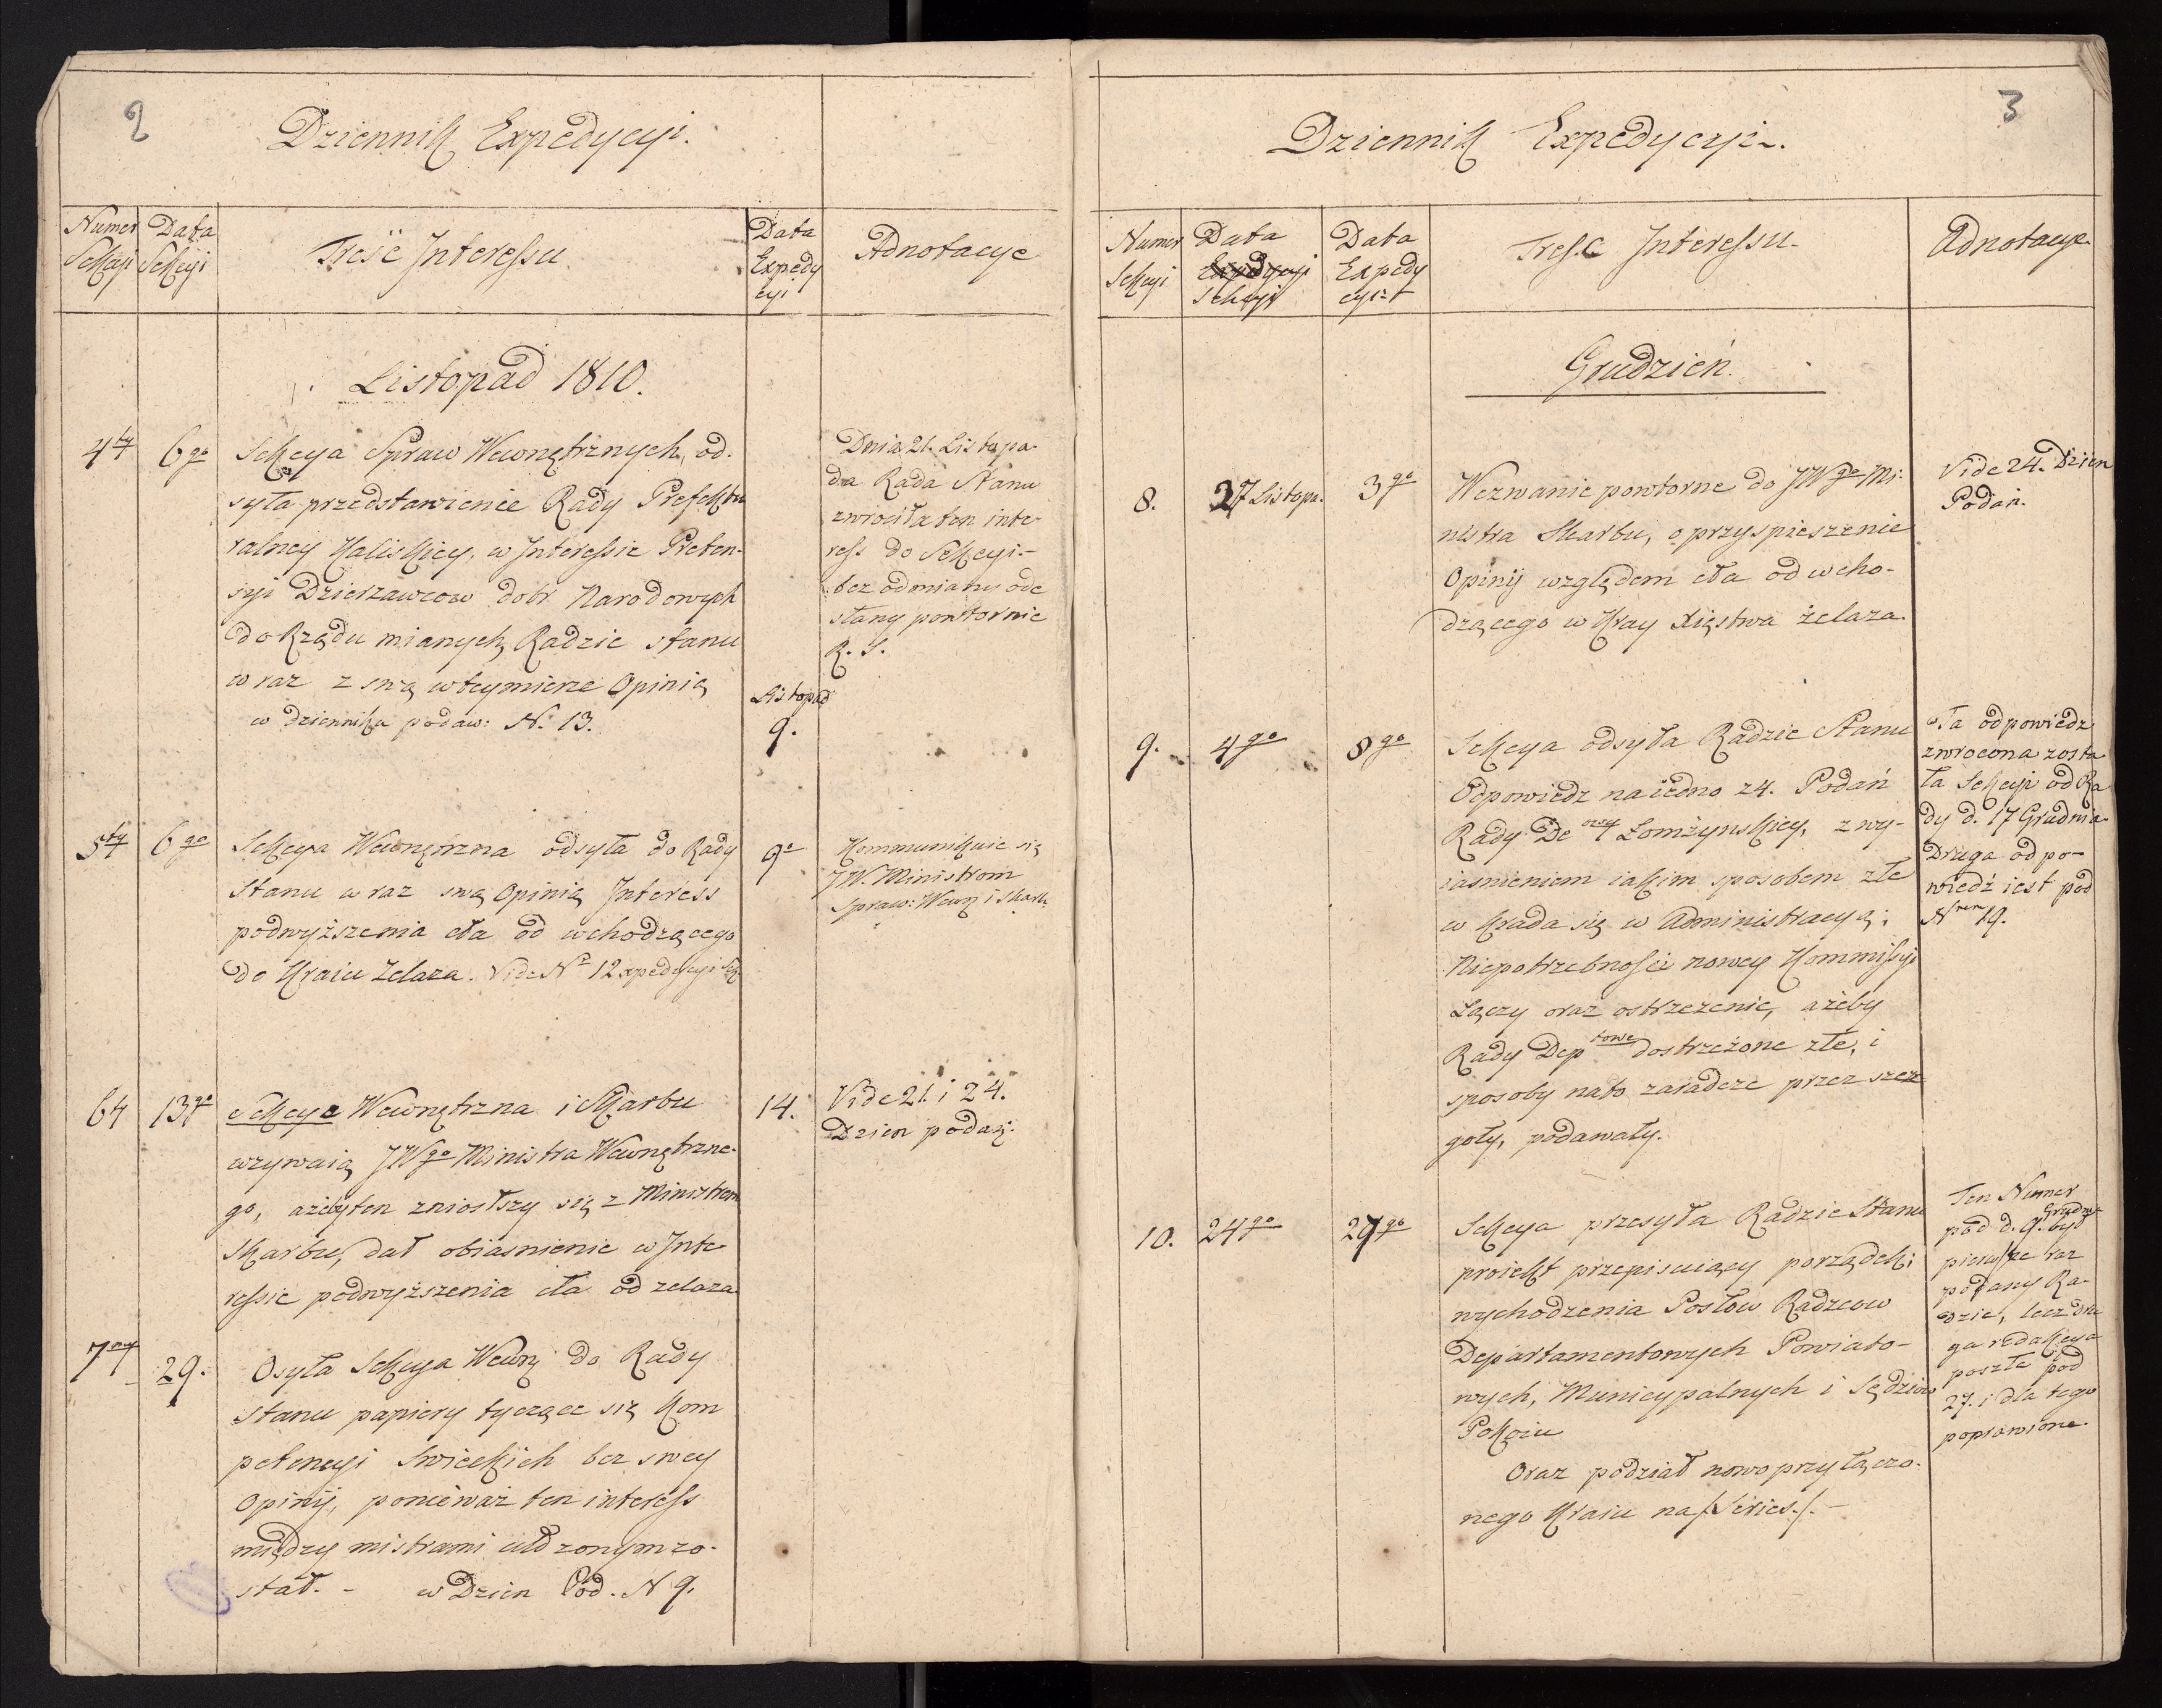 2
Dziennik Expedycyi.
Numer Sekcyi
Data Sekcyi
Treść Interessu
Data Expedycyi
Adnotacye
Listopad 1810.
4ty
6go
Sekcya Spraw Wewnętrznych, od-
syła przedstawienie Rady Prefektu
ralney Kaliskiey, w Interessie Preten-
syi Dzierzawcow dobr Narodowych
do Rządu mianych, Radzie Stanu
wraz z swą wteymierze Opinią
w dziennika podaw: N. 13.
Listopad
9.
Dnia 21. Listopa-
da Rada Stanu
zwrociła ten inte-
ress do Sekcyi-
bez odmiany ode
słany powtornie
R. S.
5ty
6go
Sekcya Wewnętrzna odsyła do Rady
Stanu wraz swą Opinią Interess
podwyższenia cła od wchodzącego
do Kraiu Zelaza. Vide No 12 xpedycyi
9o
Kommunikuie się
JW. Ministrom
Spraw: Wewn: i Skarb:
6ty
13go
Sekcye Wewnętrzna i Skarbu
wzywaią JWgo Ministra Wewnętrzne-
go, ażebyten zniosłszy się z Ministrem
Skarbu, dał obiasnienie w Inte-
ressie podwyższenia cła od zelaza
14.
Vide 21. i 24.
Dzien podań.
7my
29.
Osyła Sekcya Wewn: do Rady
Stanu papiery tyczące się Kom
petencyi Swieckich bez swey
Opinij, ponieważ ten interess
między mistrami ułdzonym zo-
stał. - w Dzien Pod. N 9.
3
Dziennik Expedycyi.
Numer Sekcyi
Data Expedycyi Sekcyi
Data Expedycyi
Tresc Interessu.
Adnotacye
Grudzień.
8.
27 Listopa.
3go
Wezwanie powtorne do JWgo Mi-
nistra Skarbu, o przyspieszenie
Opinij względem cła od wcho-
dzącego w Kray Xięstwa żelaza.
Vide 24. Dzien
Podań.
9.
4go
8go
Sekcya odsyła Radzie Stanu
Odpowiedz na iedno z 4. Podań
Rady De owy Łomżynskiey, z wy-
iasnieniem iakim sposobem złe
w krada się w Administracyą;
Niepotrzebnosci nowey Kommissyi
Łączy oraz ostrzezenie, ażeby
Rady Dep towe dostrzeżone złe, i
sposoby nato zaradcze przez szcze
goły, podawały.
Ta odpowiedz
zwrocona zosta
ła Sekcyi od Ra
dy d. 17 Grudnia-
Druga odpo-
wiedź iest pod
Nrem 19.
10.
24go
27go
Sekcya przesyła Radzie Stanu
proiekt przepisuiący porządek
wychodzenia Posłow Radzcow
Departamentowych Powiato-
wych, Municypalnych i Sędziow
Pokoiu
Oraz podział nowo przyłączo-
nego Kraiu na /:Series./. -
Ten Numer
pod d. 9. Grudnia był
pierwsze raz
podany Ra-
dzie, lecz dru
ga redakcya
poszła pod
27. i dla tego
poprawione.